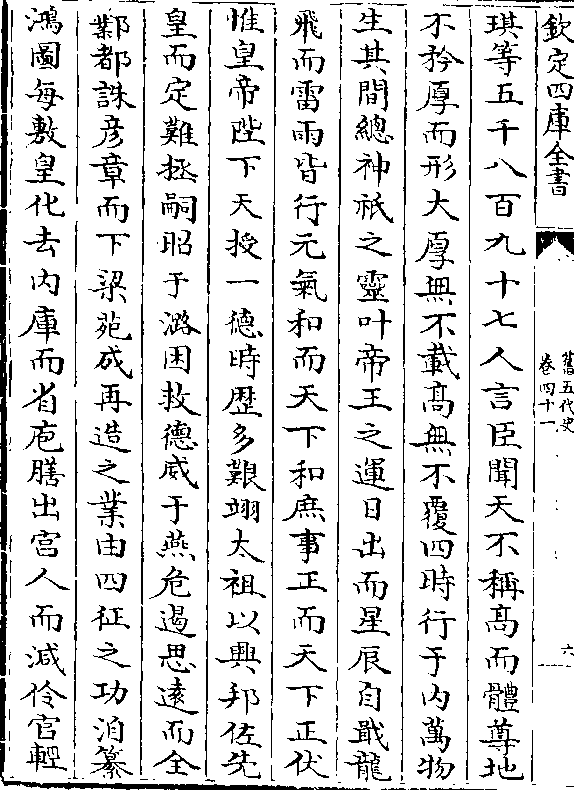 欽定四庫全書
舊五代史
卷四十一
六
琪等五千八百九十七人言臣聞天不稱髙而體尊地
不矜厚而形大厚無不載髙無不覆四時行于内萬物
生其間總神祇之靈叶帝王之運日出而星辰自戢龍
飛而雷雨皆行元氣和而天下和庶事正而天下正伏
惟皇帝陛下天授一德時歴多艱翊太祖以興邦佐先
皇而定難拯嗣昭于潞困救德威于燕危遏思逺而全
鄴都誅彦章而下梁苑成再造之業由四征之功洎纂
鴻圖每敷皇化去内庫而省庖膳出宫人而減伶官輕